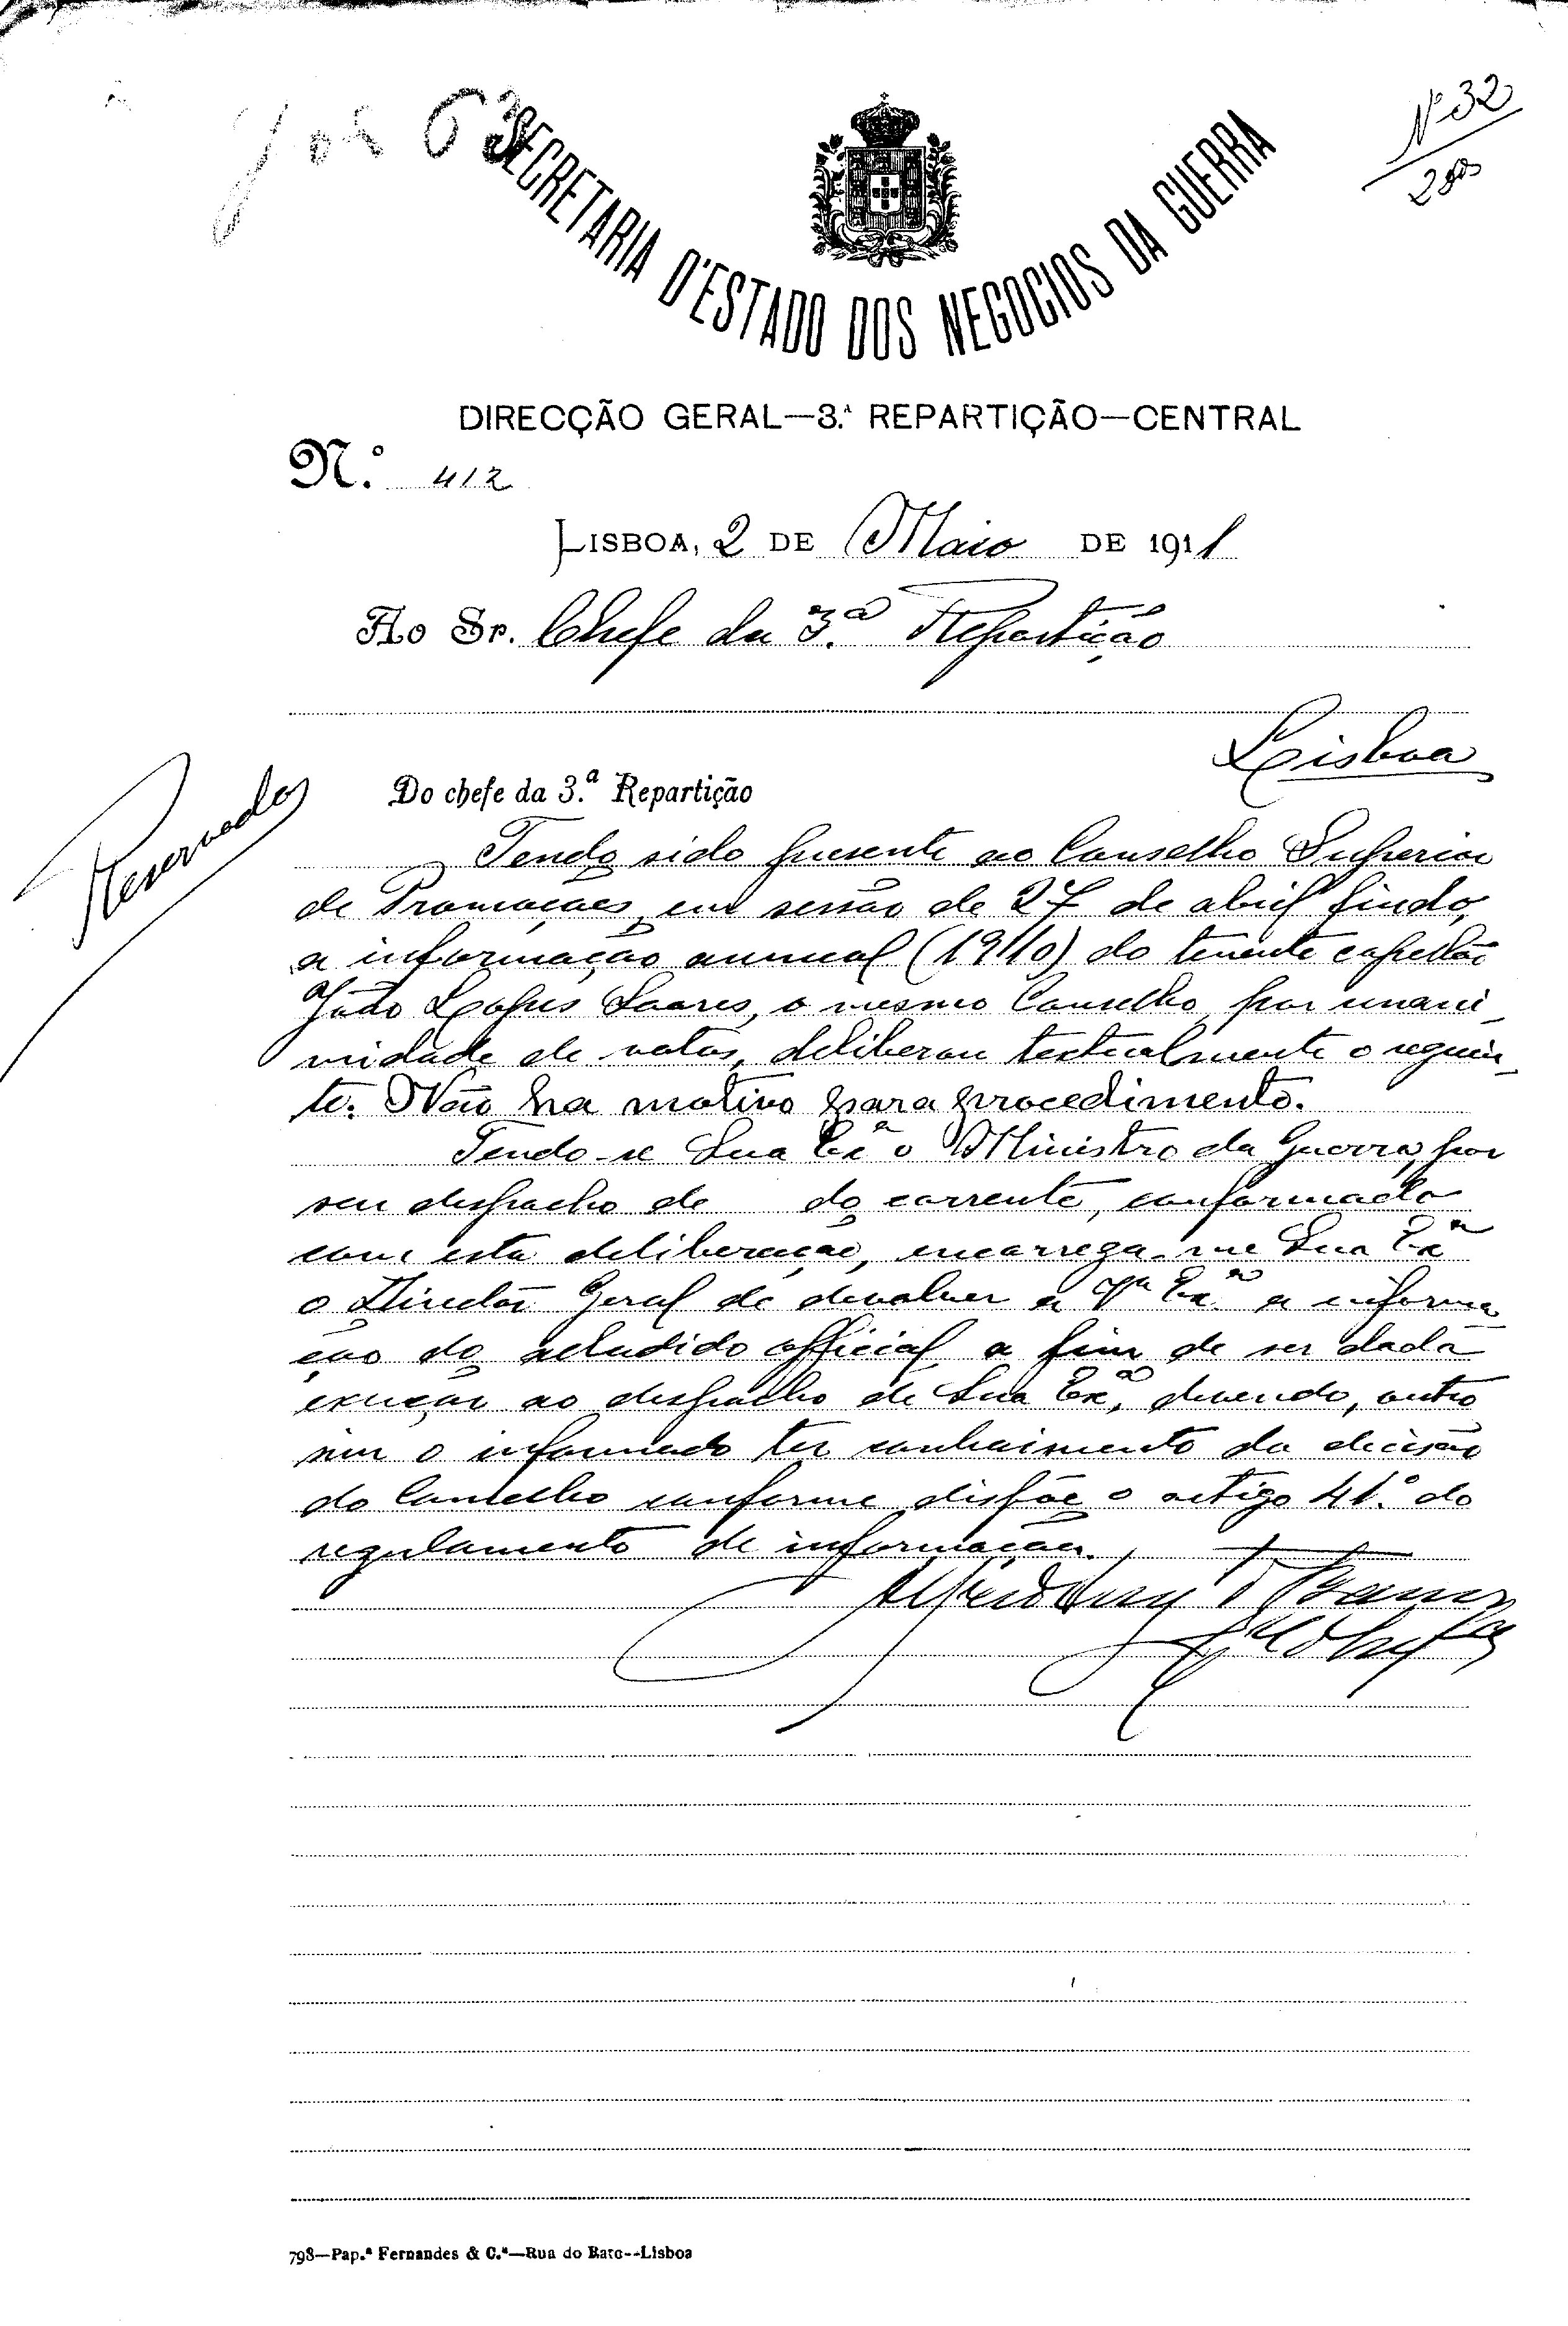 Nº 32
SECRETARIA D'ESTADO DOS NEGOCIOS DA GUERRA
DIRECÇÃO GERAL—3.ª REPARTIÇÃO—CENTRAL
N.º 412
LISBOA, 2 DE Maio DE 1911
Ao Sr. Chefe da 3.ª Repartição
Lisboa
Reservado
Do chefe da 3.ª Repartição
Tendo sido presente ao Conselho Superior
de Promoções, em sessão de 27 de abril findo,
a informação annual (1910) do tenente capellão
João Lopes Soares, o mesmo Conselho, por unani-
midade de votos, deliberou textualmente o seguin-
te: Não ha motivo para procedimento.
Tendo-se Sua Exª o Ministro da Guerra, por
seu despacho de do corrente, conformado
com esta deliberação, encarrega-me Sua Exª
o Director Geral de devolver a Vª Exª a informa-
ção do alludido official, a fim de ser dada
execução ao despacho de Sua Exª, devendo, outro
sim o informado ter conhecimento da decisão
do Conselho conforme dispõe o artigo 41.º do
regulamento de informações.
798—Pap.ª Fernandes & C.ª—Rua do Rato--Lisboa